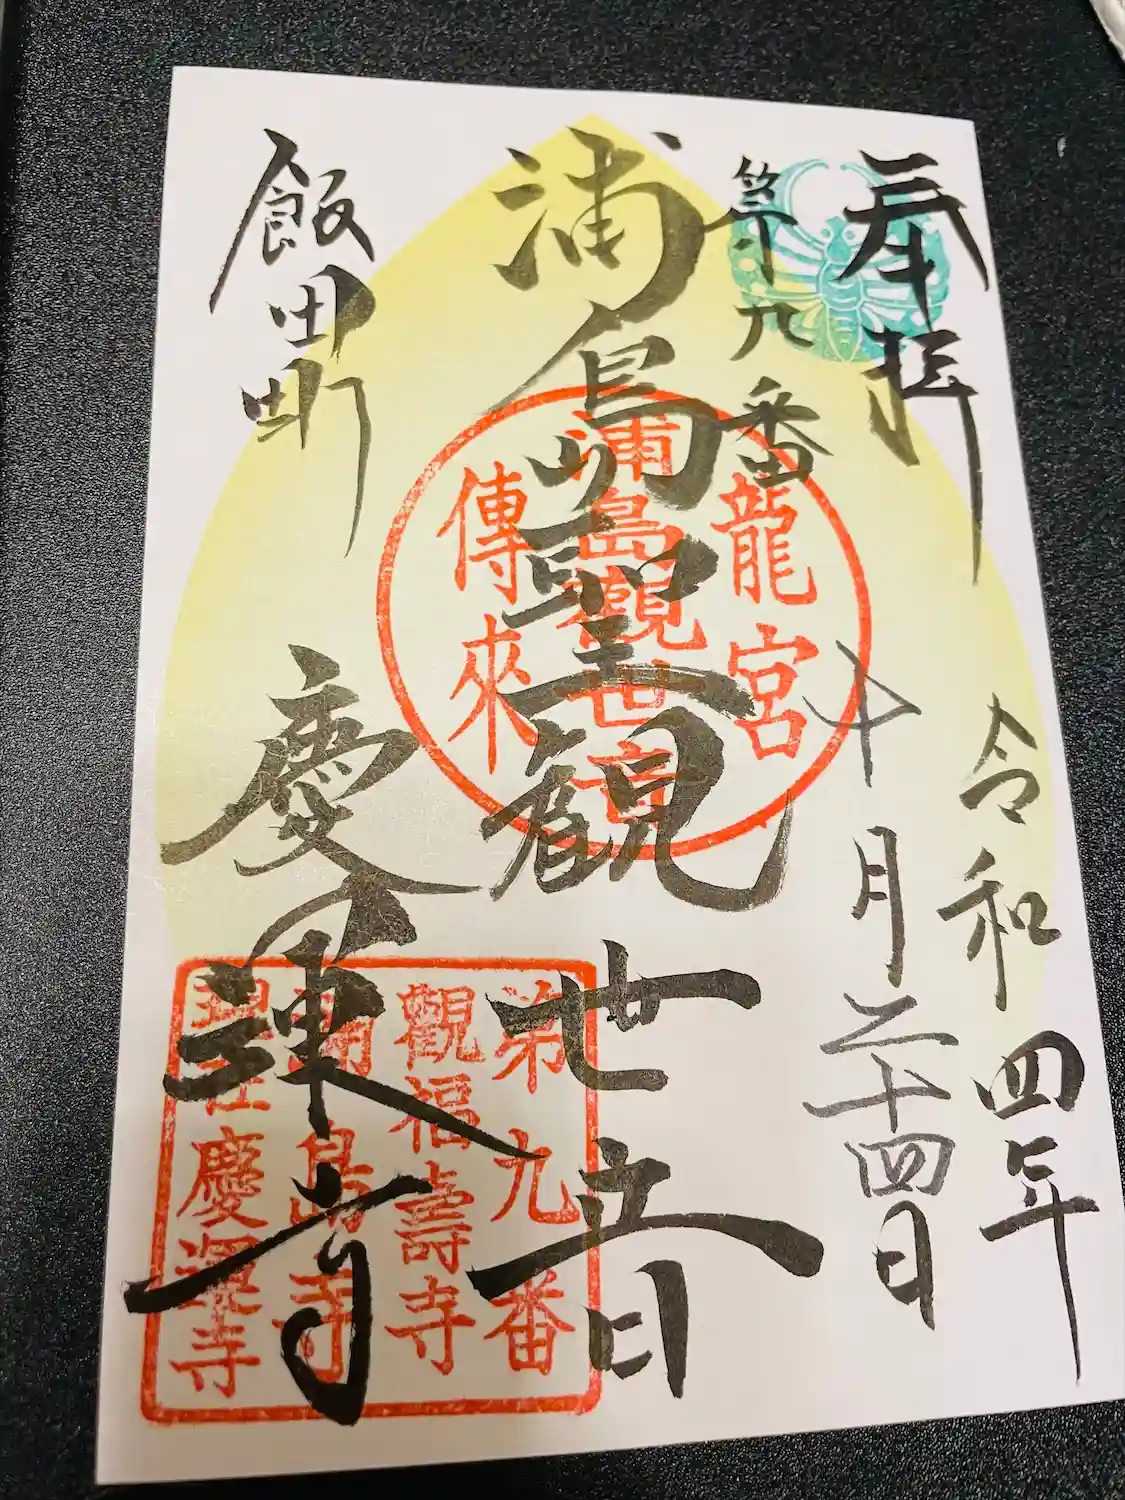 奉拝
令和四年
十月二十四日
第九番
浦島聖観世音
飯田町
慶運寺
龍宮
浦島觀世音
傳來
第九番
觀福壽寺
浦島寺
現在慶運寺